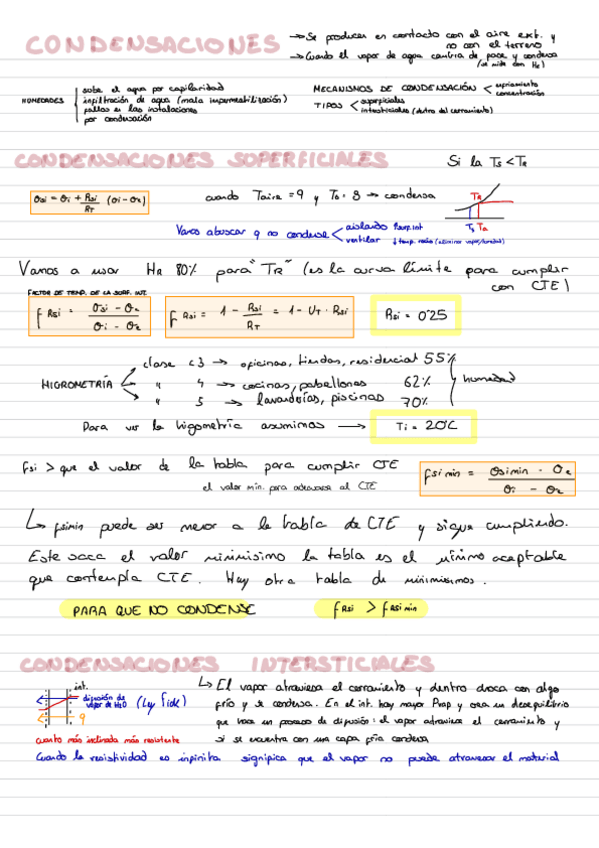 CONDENSACIONES
→ Se producen en contacto con el aire ext. y
no con el terreno
→ Cuando el vapor de agua cambia de fase y condensa
(se mide con HR)
HUMEDADES
sube el agua por capilaridad
infiltración de agua (mala impermeabilización)
fallos en las instalaciones
por condensación
MECANISMOS DE CONDENSACIÓN < enfriamiento
concentración
TIPOS < superficiales
intersticiales (dentro del cerramiento)
CONDENSACIONES SUPERFICIALES
Si la Ts < TR
θsi = θi + Rsi/RT (θi - θe)
cuando Taire = 9 y Ts = 8 → condensa
TR
Ts Ta
Vamos a buscar q no condense < aislando ↑temp.int
ventilar ↓temp. rocío (eliminar vapor/humedad)
Vamos a usar HR 80% para "TR" (es la curva límite para cumplir
con CTE)
FACTOR DE TEMP. DE LA SURF. INT.
f Rsi = θsi - θe / θi - θe
f Rsi = 1 - Rsi/RT = 1 - UT · Rsi
Rsi = 0'25
HIGROMETRÍA
clase <3 → oficinas, tiendas, residencial 55%
" 4 → cocinas, pabellones 62%
" 5 → lavanderías, piscinas 70%
humedad
Para ver la higometría asumimos → Ti = 20ºC
Fsi > que el valor de la tabla para cumplir CTE
el valor min. para adecuarse al CTE
fsi min = θsimin - θe / θi - θe
↳ fsimin puede ser menor a la tabla de CTE y sigue cumpliendo.
Este saca el valor minimisimo la tabla es el mínimo aceptable
que contempla CTE. Hay otra tabla de minimisimos.
PARA QUE NO CONDENSE
fRsi > fRsi min
CONDENSACIONES INTERSTICIALES
int.
difusión de
vapor de H2O (Ley Fick)
q
cuanto más inclinada más resistente
↳ El vapor atraviesa el cerramiento y dentro choca con algo
frío y se condensa. En el int. hay mayor Pvap y crea un desequilibrio
que hace un proceso de difusión: el vapor atraviesa el cerramiento y
si se encuentra con una capa fría condensa
Cuando la resistividad es infinita significa que el vapor no puede atravesar el material